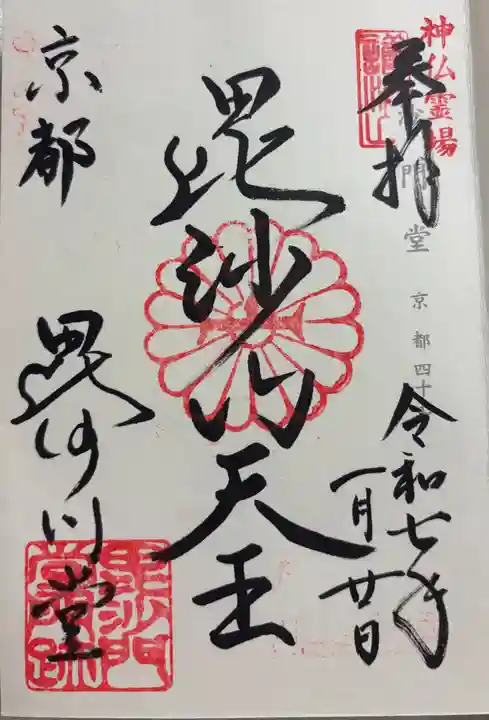 神仏霊場
奉拝
門堂 京都四十
令和七年
一月廿日
毘沙门天王
京都 毘沙门堂
毘沙門堂跡